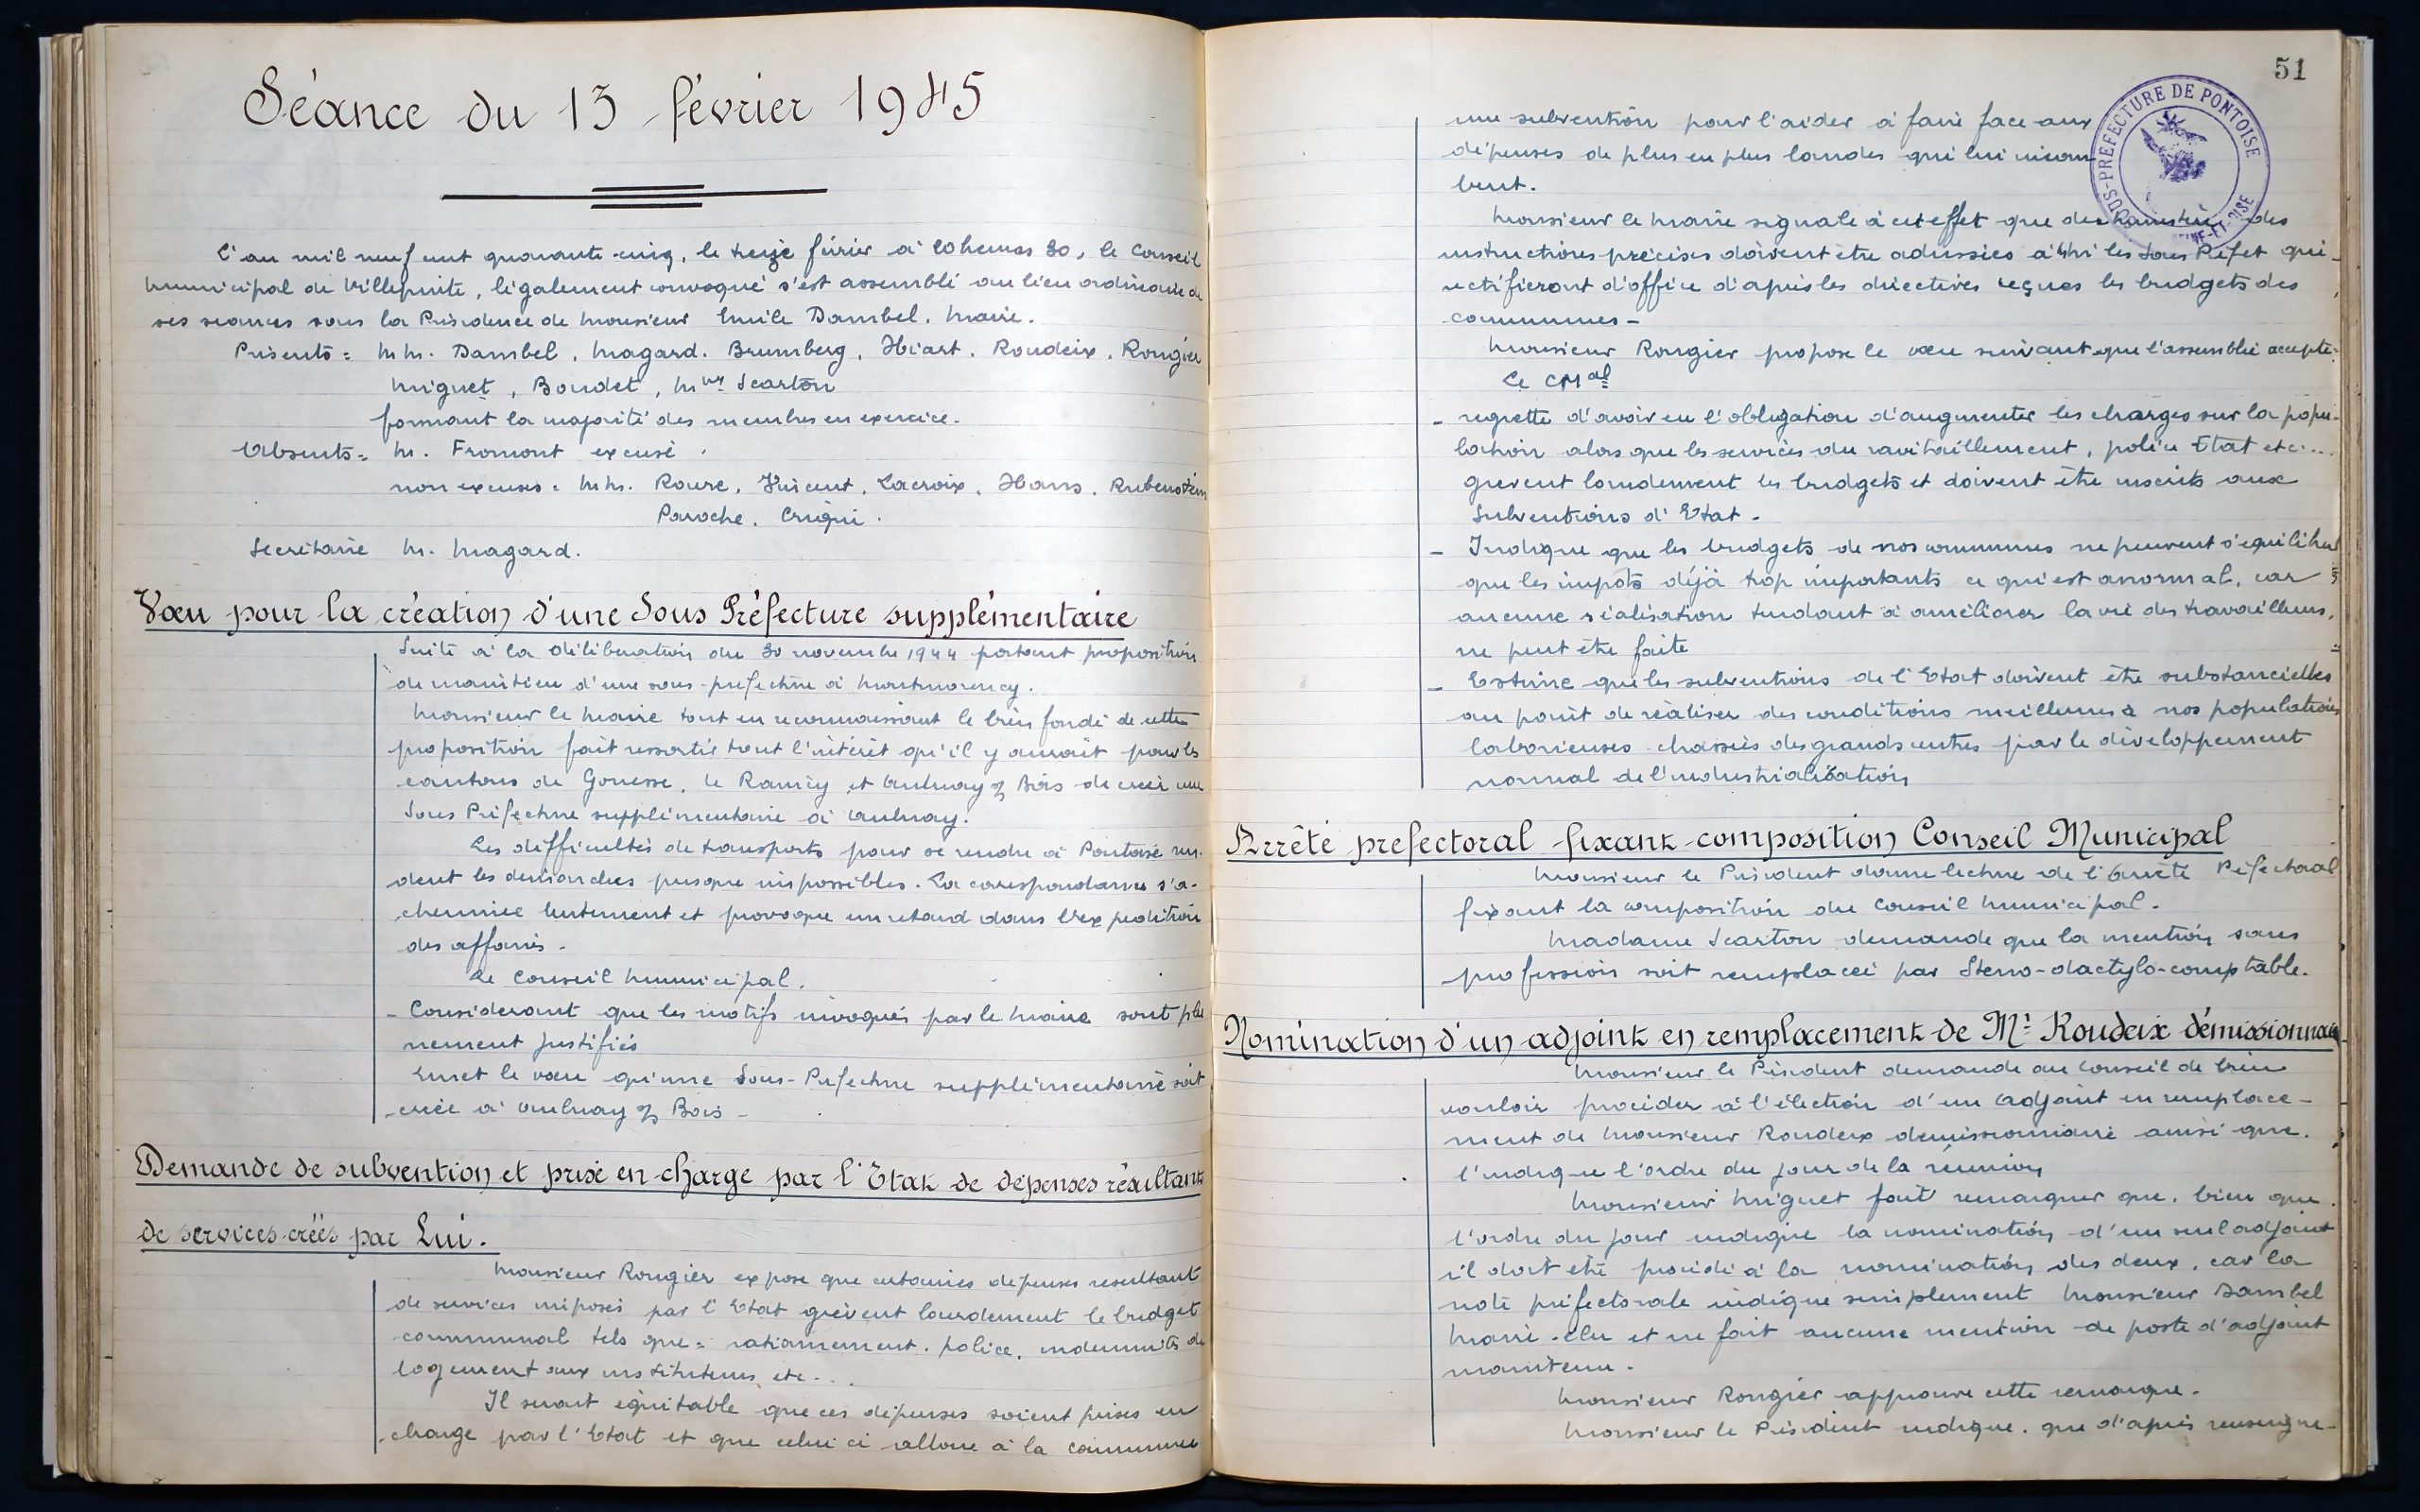 Séance du 13 février 1945
L'an mil neuf cent quarante cinq, le treize février à 20 heures 30, le Conseil
Municipal de Villepinte, légalement convoqué s'est assemblé au lieu ordinaire de
ses séances sous la Présidence de Monsieur Emile Dambel. Maire.
Présents = M.M. Dambel, Magard. Brumberg, Hiart. Roudeix, Rougier
Miguet, Boudet, Mme Scarton
formant la majorité des membres en exercice.
Absents = M. Fromont excusé.
non excusés = M.M. Roure, Vincent, Lacroix, Hans, Rubenstein
Paroche, Crugni.
Secrétaire M. Magard.
Vœu pour la création d'une Sous Préfecture supplémentaire
Suite à la délibération du 30 novembre 1944 portant proposition
de maintien d'une sous-préfecture à Montmorency.
Monsieur le Maire tout en reconnaissant le bien fondé de cette
proposition fait ressortir tout l'intérêt qu'il y aurait pour les
cantons de Gonesse, le Raincy et Aulnay s/ Bois de créer une
Sous Préfecture supplémentaire à Aulnay.
Les difficultés de transports pour se rendre à Pontoise ren-
dent les démarches presque impossibles. La correspondance s'a-
chemine lentement et provoque un retard dans l'expédition
des affaires -
Le Conseil Municipal.
- Considerant que les motifs invoqués par le Maire sont plei
nement justifiés
Emet le vœu qu'une Sous-Préfecture supplémentaire soit
créée à Aulnay s/ Bois -
Demande de subvention et prise en charge par l'Etat de dépenses résultant
de services créés par Lui.
Monsieur Rougier expose que certaines dépenses resultant
de services imposés par l'Etat grèvent lourdement le budget
communal tels que = rationnement. police, indemnités de
logement aux instituteurs, etc...
Il serait équitable que ces dépenses soient prises en
charge par l'Etat et que celui ci alloue à la commune
51
SOUS-PRÉFECTURE DE PONTOISE
une subvention pour l'aider à faire face aux
dépenses de plus en plus lourdes qui lui incom-
bent.
Monsieur le Maire signale à cet effet que des des
instructions précises doivent être adressées à les Sous Préfet qui
rectifieront d'office d'après les directives reçues les budgets des
communes -
Monsieur Rougier propose le vœu suivant que l'assemblée accepte =
Le CMal
- regrette d'avoir eu l'obligation d'augmenter les charges sur la popu-
lation alors que les services du ravitaillement, police Etat etc...
grevent lourdement les budgets et doivent être inscrits aux
Subventions d'Etat -
- Indique que les budgets de nos communes ne peuvent s'equilibrer
que les impots déjà trop importants ce qui est anormal, car
aucune réalisation tendant à améliorer la vie des travailleurs,
ne peut être faite
- Estime que les subventions de l'Etat doivent être substancielles
au point de réaliser des conditions meilleures à nos populations
laborieuses chassées des grands centres par le développement
normal de l'industrialisation
Arrêté prefectoral fixant composition Conseil Municipal
Monsieur le Président donne lecture de l'Arrêté Préfectoral
fixant la composition du Conseil Municipal.
Madame Scarton demande que la mention sans
profession soit remplacée par Steno-dactylo-comptable.
Nomination d'un adjoint en remplacement de Mr Roudeix démissionnaire
Monsieur le Président demande au Conseil de bien
vouloir procéder à l'élection d'un Adjoint en remplace-
ment de Monsieur Roudeix demissionnaire ainsi que.
l'indique l'ordre du jour de la réunion
Monsieur Miguet fait remarquer que, bien que
l'ordre du jour indique la nomination d'un seul adjoint
il doit être procédé à la nomination des deux, car la
note préfectorale indique simplement Monsieur Dambel
Maire élu et ne fait aucune mention de poste d'adjoint
maintenu.
Monsieur Rougier approuve cette remarque.
Monsieur le Président indique. que d'après renseigne-